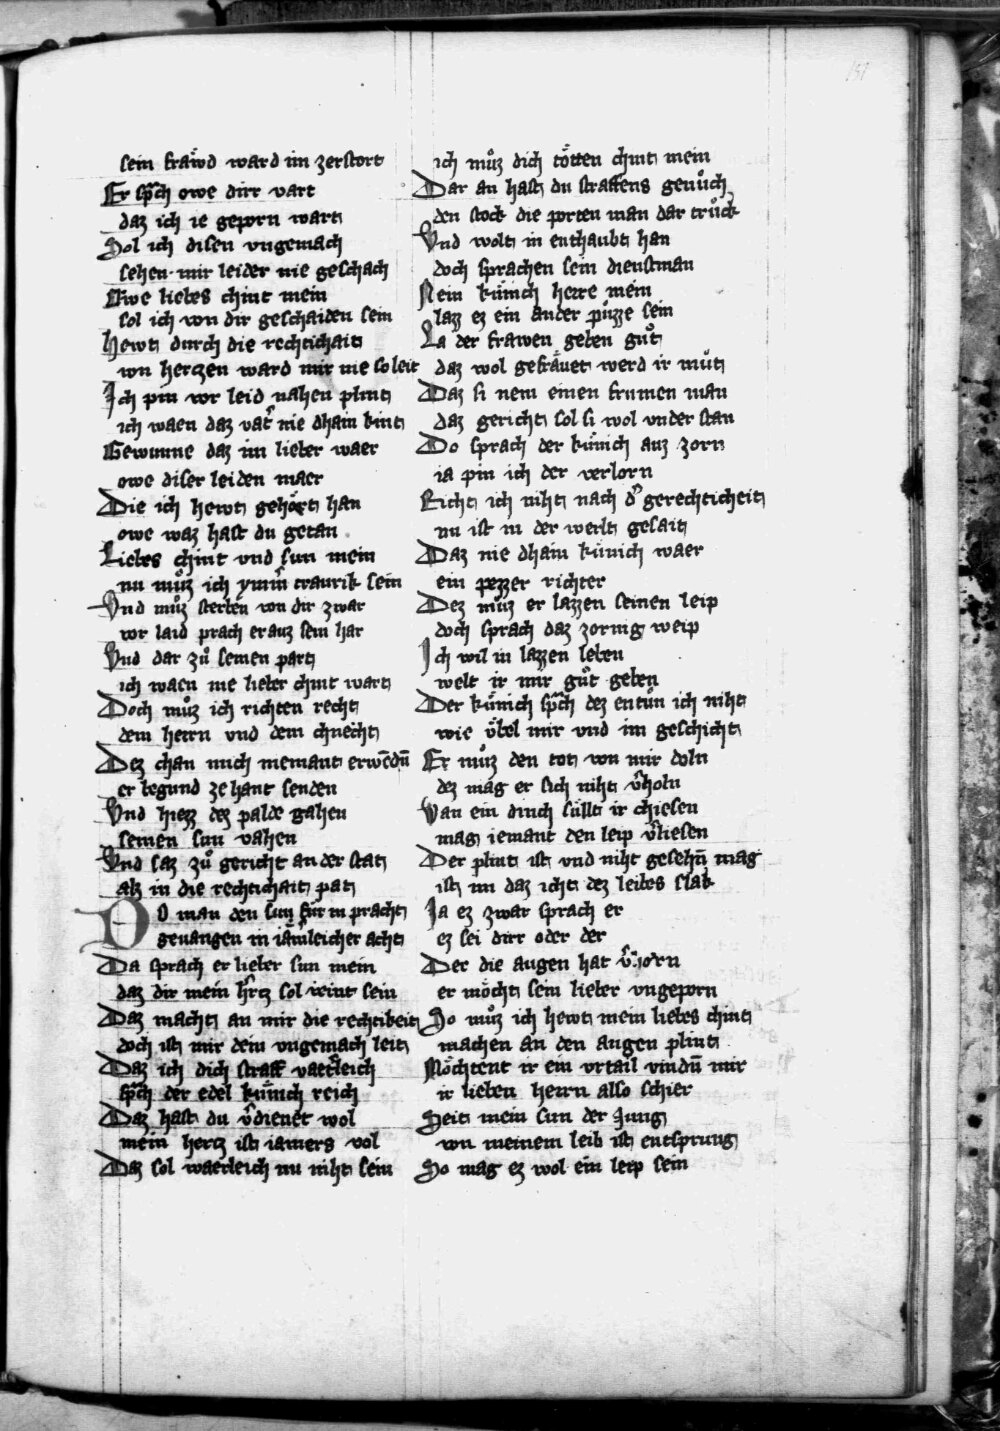 sein fraͤwd ward im zerstort
Er sp̃ch owe dirr vart
daz ich ie geporn wart
Sol ich disen vngemach
sehen mir leider nie geschach
Owe liebes chint mein
sol ich von dir geschaiden sein
Hewt durch die rechtichait
von hertzen ward mir nie so leit
Ich pin vor leid nahen plint
ich waen daz vat̉ nie dhain kint
Gewunne daz im lieber waer
owe diser leiden maer
Die ich hewt gehoͤrt han
owe waz hast du getan
Liebes chint vnd sun mein
nu muͦz ich ym̃ traurik sein
Vnd muͦz sterben von dir zwar
vor laid prach er auz sein har
Vnd dar zuͦ seinen part
ich waen nie lieber chint wart
Doch muͦz ich richten recht
dem herrn vnd dem chnecht
Dez chan mich niemant erwẽdñ
er begund ze hant senden
Vnd hiezz dez palde gahen
seinen sun vahen
Vnd saz zuͦ gericht an der stat
alz in die rechtichait pat
DO man den sun fuͤr in pracht
geuangen in iam̉leicher acht
Da sprach er lieber sun mein
daz dir mein h̉tz sol veint sein
Daz macht an mir die rechtikeit
doch ist mir dein vngemach leit
Daz ich dich straff vaet̉leich
sp̃ch der edel kuͤnich reich
Daz hast du v̉dienet wol
mein hertz ist iamers vol
Daz sol waerleich nu niht sein
ich muͦz dich toͤtten chint mein
Dar an hast du straffens genuͦch
den stock die porten man dar truͦck
Vnd wolt in enthaubt han
doch sprachen sein dienstman
Nein kuͤnich herre mein
lazz ez ein ander puͤzze sein
La der frawen geben guͦt
daz wol gefraͤuet werd ir muͦt
Daz si nem einen frumen man
daz gericht sol si wol vnder stan
Do sprach der kuͤnich auz zorn
ia pin ich der verlorn
Richt ich niht nach d̉ gerechticheit
nu ist in der werlt gesait
Daz nie dhain kuͤnich waer
ein pezzer richter
Dez muͦz er lazzen seinen leip
doch sprach daz zornig weip
Ich wil in lazzen leben
welt ir mir guͦt geben
Der kuͤnich sp̃ch dez entuͦn ich niht
wie vͤbel mir vnd im geschicht
Er muͦz den tot von mir doln
dez mag er sich niht v̉holn
Wan ein dinch suͤllt ir chiesen
mag iemant den leip v̉liesen
Der plint ist vnd niht gesehñ mag
ist im daz icht dez leibes slak
Ja ez zwar sprach er
ez sei dirr oder der
Der die augen hat v̉lorn
er moͤcht sein lieber vngeporn
So muͦz ich hewt mein liebes chint
machen an den augen plint
Moͤchtent ir ein vrtail vindñ mir
ir lieben herrn also schier
Seit mein sun der iung
von meinem leib ist entsprung
So mag ez wol ein leip sein